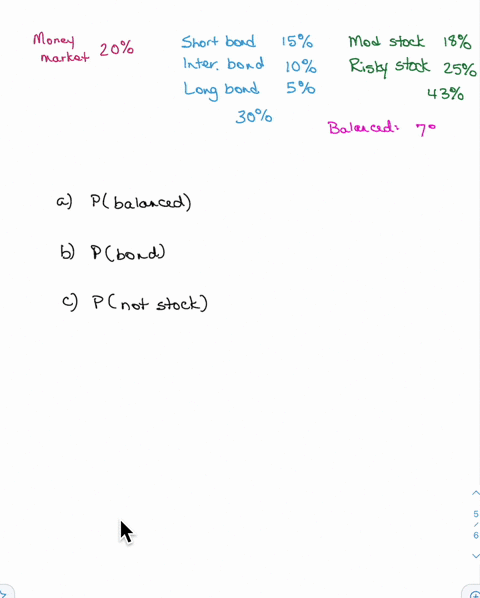 Money market 20%
Short bond 15%
Inter. bond 10%
Long bond 5%
30%
Mod stock 18%
Risky stock 25%
43%
Balanced: 7°
a) P(balanced)
b) P(bond)
c) P(not stock)
5
/
6